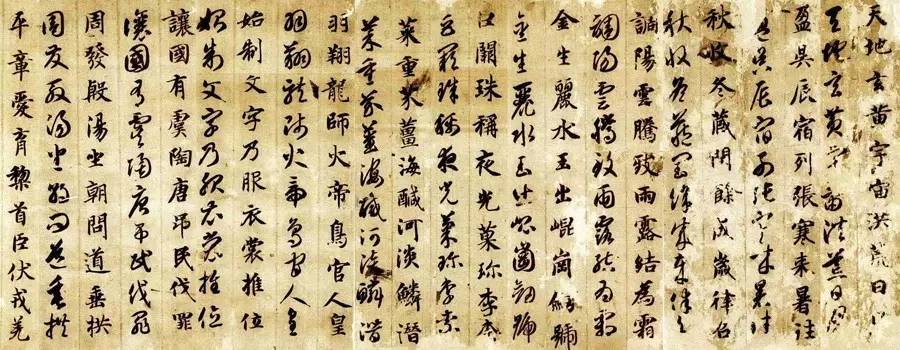 天地玄黄宇宙洪荒日月
天地玄黄宇宙洪荒日月
盈昃辰宿列張寒來暑往
盈昃辰宿列張寒來暑往
秋收冬藏閏餘成歲律召
秋收冬藏閏餘成歲律召
調陽雲騰致雨露結為霜
調陽雲騰致雨露結為霜
金生麗水玉出崐崗劍號
金生麗水玉出崐崗劍號
巨闕珠稱夜光菓珍李柰
巨闕珠稱夜光菓珍李柰
菜重芥薑海醎河淡鱗潛
菜重芥薑海醎河淡鱗潛
羽翔龍師火帝鳥官人皇
羽翔龍師火帝鳥官人皇
始制文字乃服衣裳推位
始制文字乃服衣裳推位
讓國有虞陶唐弔民伐罪
讓國有虞陶唐弔民伐罪
周發殷湯坐朝問道垂拱
周發殷湯坐朝問道垂拱
平章愛育黎首臣伏戎羌